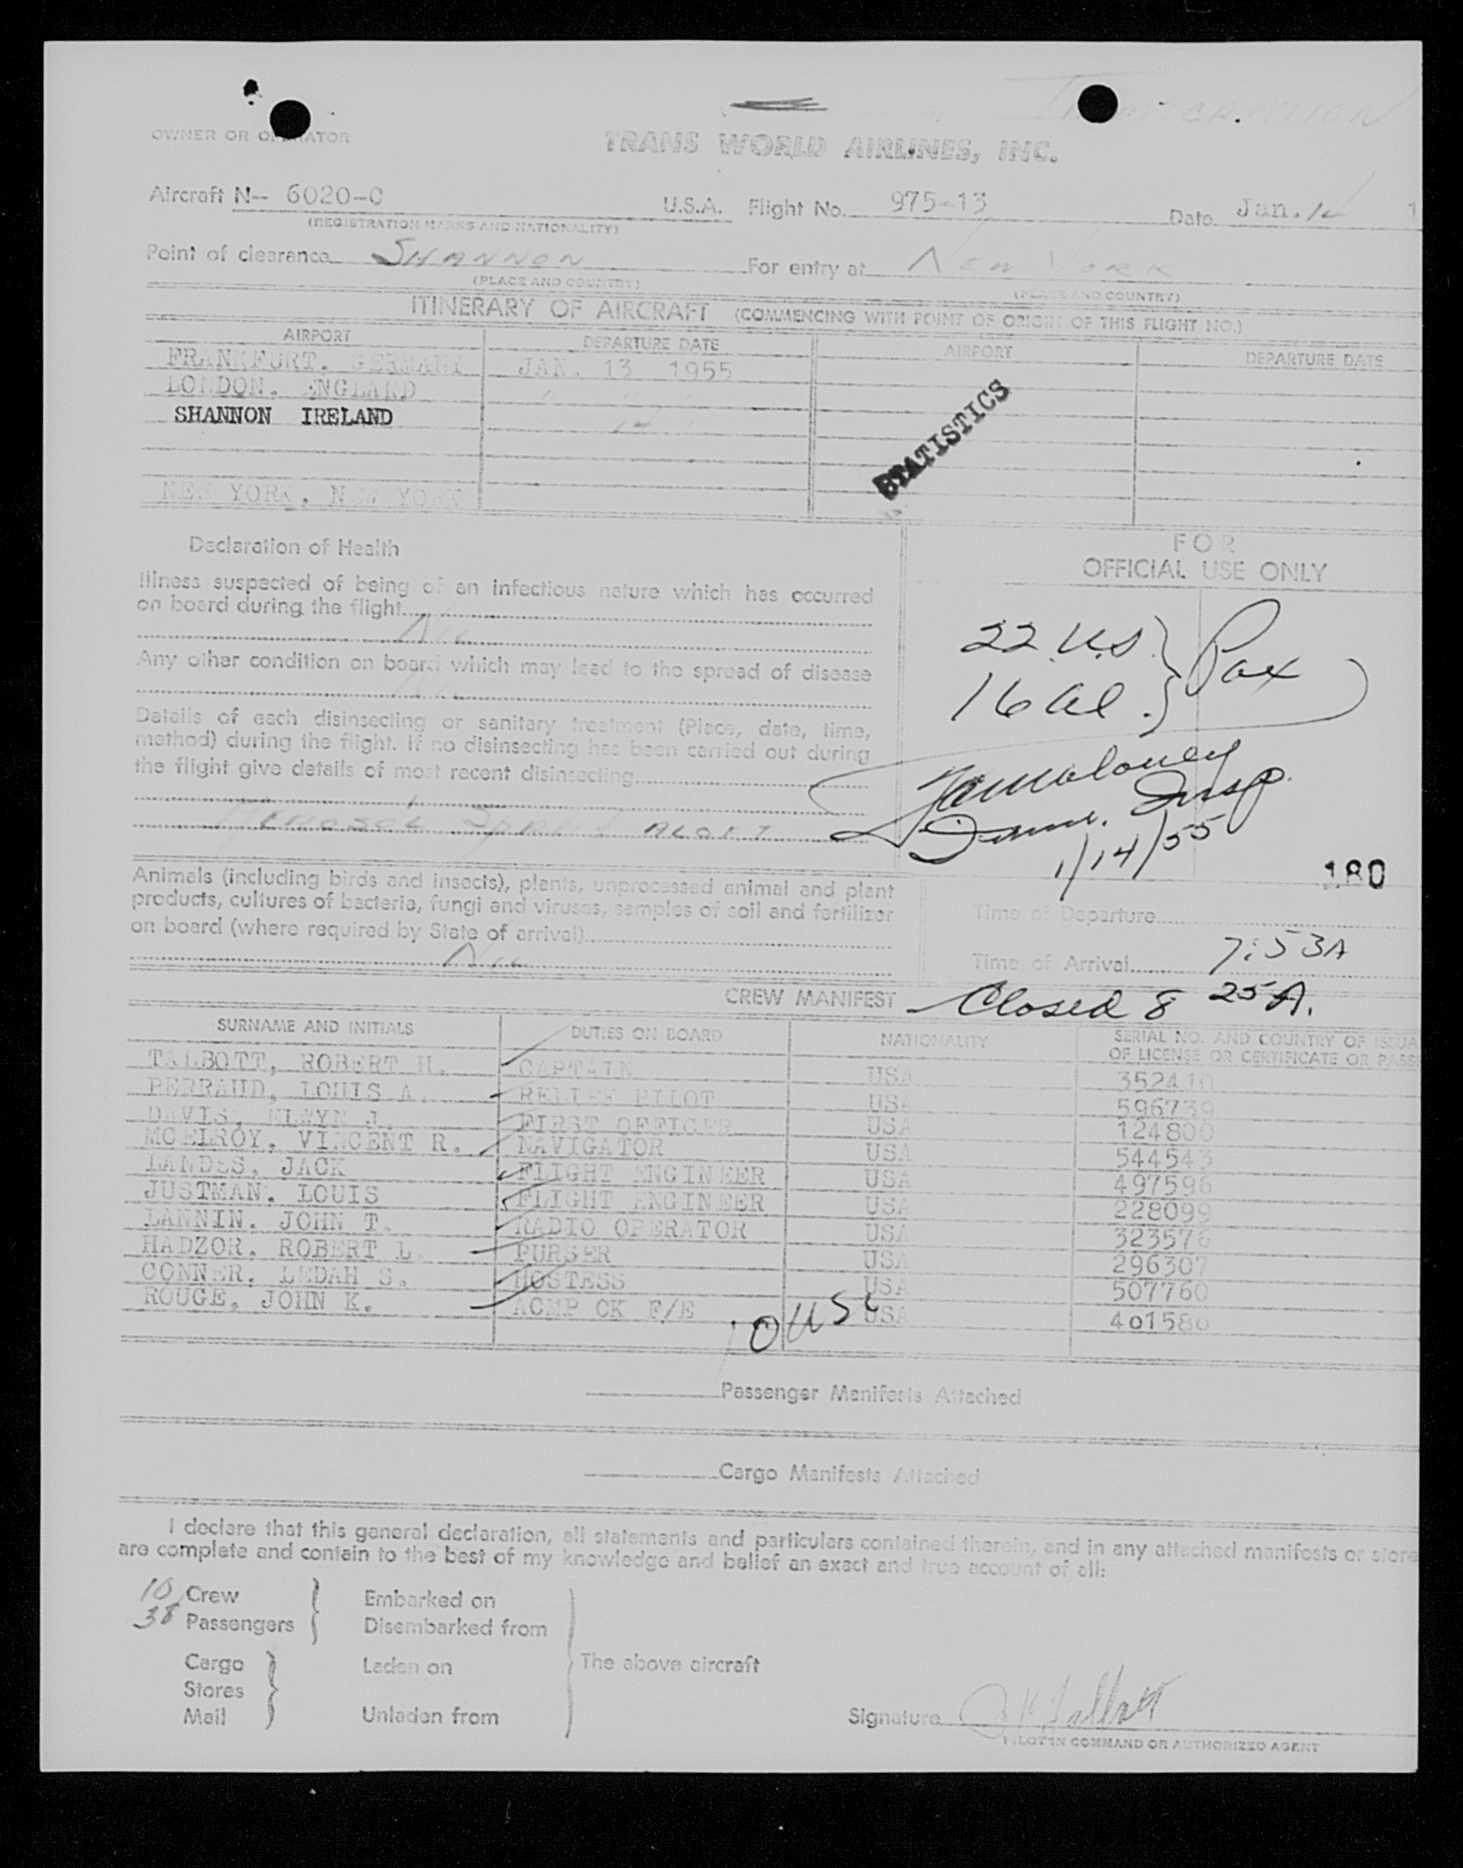 IMMIGRATION
OWNER OR OPERATOR
TRANS WORLD AIRLINES, INC.
Aircraft N-- 6020-C U.S.A. Flight No. 975-13 Date Jan. 14 1
(REGISTRATION MARKS AND NATIONALITY)
Point of clearance SHANNON For entry at New York
(PLACE AND COUNTRY) (PLACE AND COUNTRY)
ITINERARY OF AIRCRAFT (COMMENCING WITH POINT OF ORIGIN OF THIS FLIGHT NO.)
AIRPORT DEPARTURE DATE AIRPORT DEPARTURE DATE
FRANKFURT, GERMANY JAN. 13 1955
LONDON, ENGLAND " " "
SHANNON IRELAND 14
STATISTICS
NEW YORK, NEW YORK
Declaration of Health
Illness suspected of being of an infectious nature which has occurred
on board during the flight
No
Any other condition on board which may lead to the spread of disease
No
Details of each disinsecting or sanitary treatment (Place, date, time,
method) during the flight. If no disinsecting has been carried out during
the flight give details of most recent disinsecting
AEROSOL SPRAY ALOFT
FOR
OFFICIAL USE ONLY
22 U.S. } Pax
16 al. }
Maloney
Imm. Insp.
1/14/55
180
Animals (including birds and insects), plants, unprocessed animal and plant
products, cultures of bacteria, fungi and viruses, samples of soil and fertilizer
on board (where required by State of arrival)
No
Time of Departure
Time of Arrival 7:53A
Closed 8 25 A.
CREW MANIFEST
SURNAME AND INITIALS DUTIES ON BOARD NATIONALITY SERIAL NO. AND COUNTRY OF ISSUA
OF LICENSE OR CERTIFICATE OR PASS
TALBOTT, ROBERT H. CAPTAIN USA 352410
PERRAUD, LOUIS A. RELIEF PILOT USA 596739
DAVIS, ELWYN J. FIRST OFFICER USA 124800
MCELROY, VINCENT R. NAVIGATOR USA 544543
LANDES, JACK FLIGHT ENGINEER USA 497596
JUSTMAN, LOUIS FLIGHT ENGINEER USA 228099
LANNIN, JOHN T. RADIO OPERATOR USA 323576
HADZOR, ROBERT L. PURSER USA 296307
CONNER, LEDAH S. HOSTESS USA 507760
ROUGE, JOHN K. ACMP CK F/E USA 401580
10 USC
Passenger Manifests Attached
Cargo Manifests Attached
I declare that this general declaration, all statements and particulars contained therein, and in any attached manifests or store
are complete and contain to the best of my knowledge and belief an exact and true account of all:
10 Crew Embarked on
38 Passengers Disembarked from
Cargo Laden on The above aircraft
Stores
Mail Unladen from
Signature R H Talbott
PILOT IN COMMAND OR AUTHORIZED AGENT